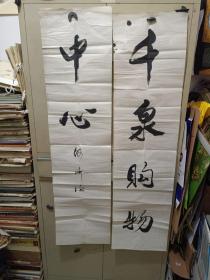 千泉购物
中心